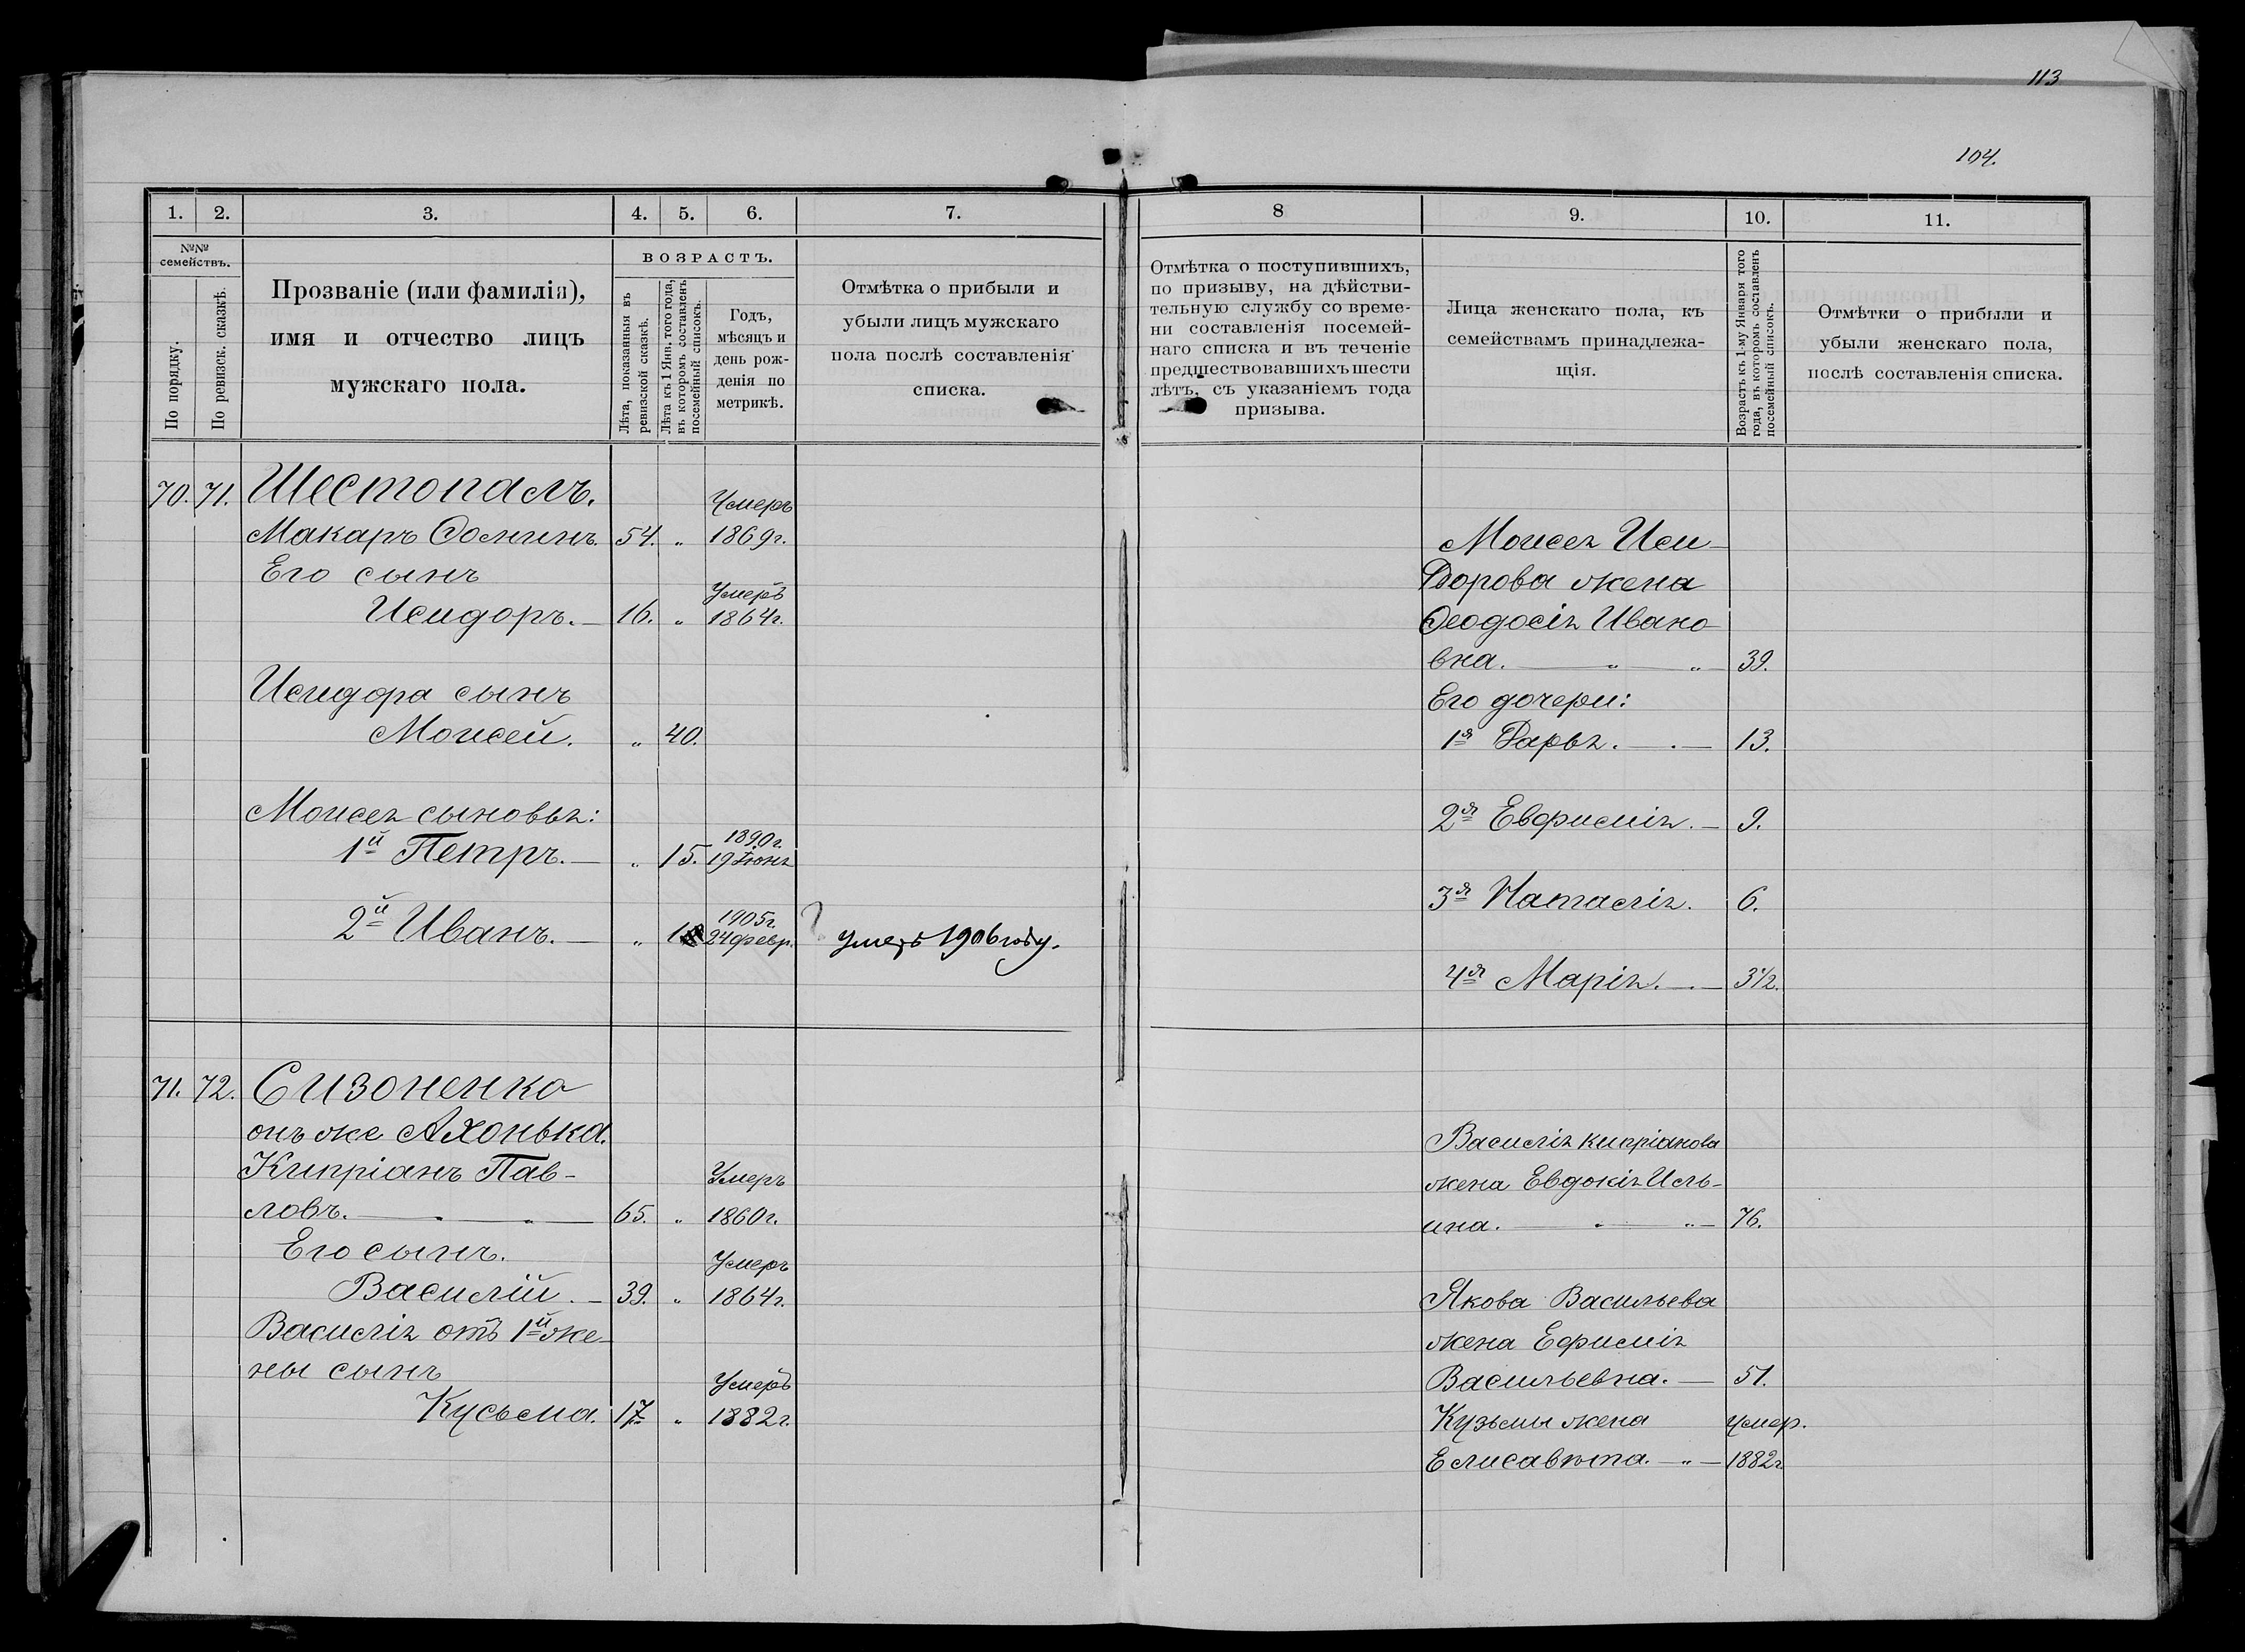 113
104.
1. 2. 3. 4. 5. 6. 7.
№№ семействъ.
По порядку.
По ревизск. сказкѣ.
Прозваніе (или фамилія),
имя и отчество лицъ
мужскаго пола.
ВОЗРАСТЪ.
Лѣта, показанныя въ
ревизской сказкѣ.
Лѣта къ 1 Янв. того года,
въ которомъ составленъ
посемейный списокъ.
Годъ,
мѣсяцъ и
день рож-
денія по
метрикѣ.
Отмѣтка о прибыли и
убыли лицъ мужскаго
пола послѣ составленія
списка.
70. 71. Шестопалъ.
Умеръ
Макаръ Ѳоминъ. 54. „ 1869г.
Его сынъ
Умеръ
Исидоръ. 16. „ 1864г.
Исидора сынъ
Моисей. „ 40.
Моисея сыновья:
1890г.
1й Петръ. „ 15. 19 Іюня
1905г.
2й Иванъ. „ 24 февр. ? умеръ 1906 году.
71. 72. Сизоненко
онъ же Ахонька.
Кипріанъ Пав-
Умеръ
ловъ. „ 65. „ 1860г.
Его сынъ.
Умеръ
Василій. 39. „ 1864г.
Василія отъ 1й же-
ны сынъ
Умеръ
Кусьма. 17 „ 1882г.
8 9. 10. 11.
Отмѣтка о поступившихъ,
по призыву, на дѣйстви-
тельную службу со време-
ни составленія посемей-
наго списка и въ теченіе
предшествовавшихъ шести
лѣтъ, съ указаніемъ года
призыва.
Лица женскаго пола, къ
семействамъ принадлежа-
щія.
Возрастъ къ 1-му Января того
года, въ которомъ составленъ
посемейный списокъ.
Отмѣтки о прибыли и
убыли женскаго пола,
послѣ составленія списка.
Моисея Иси-
дорова жена
Ѳеодосія Ивано
вна. „ „ 39.
Его дочери:
1я Дарья. 13.
2я Евфимія. 9.
3я Наталія. 6.
4я Марія. 3½.
Василія Кипріанова
жена Евдокія Иль-
ина. „ „ 76.
Якова Васильева
жена Ефимія
Васильевна. 51.
Кузьмы жена Умер.
Елисавѣта. „ 1882г